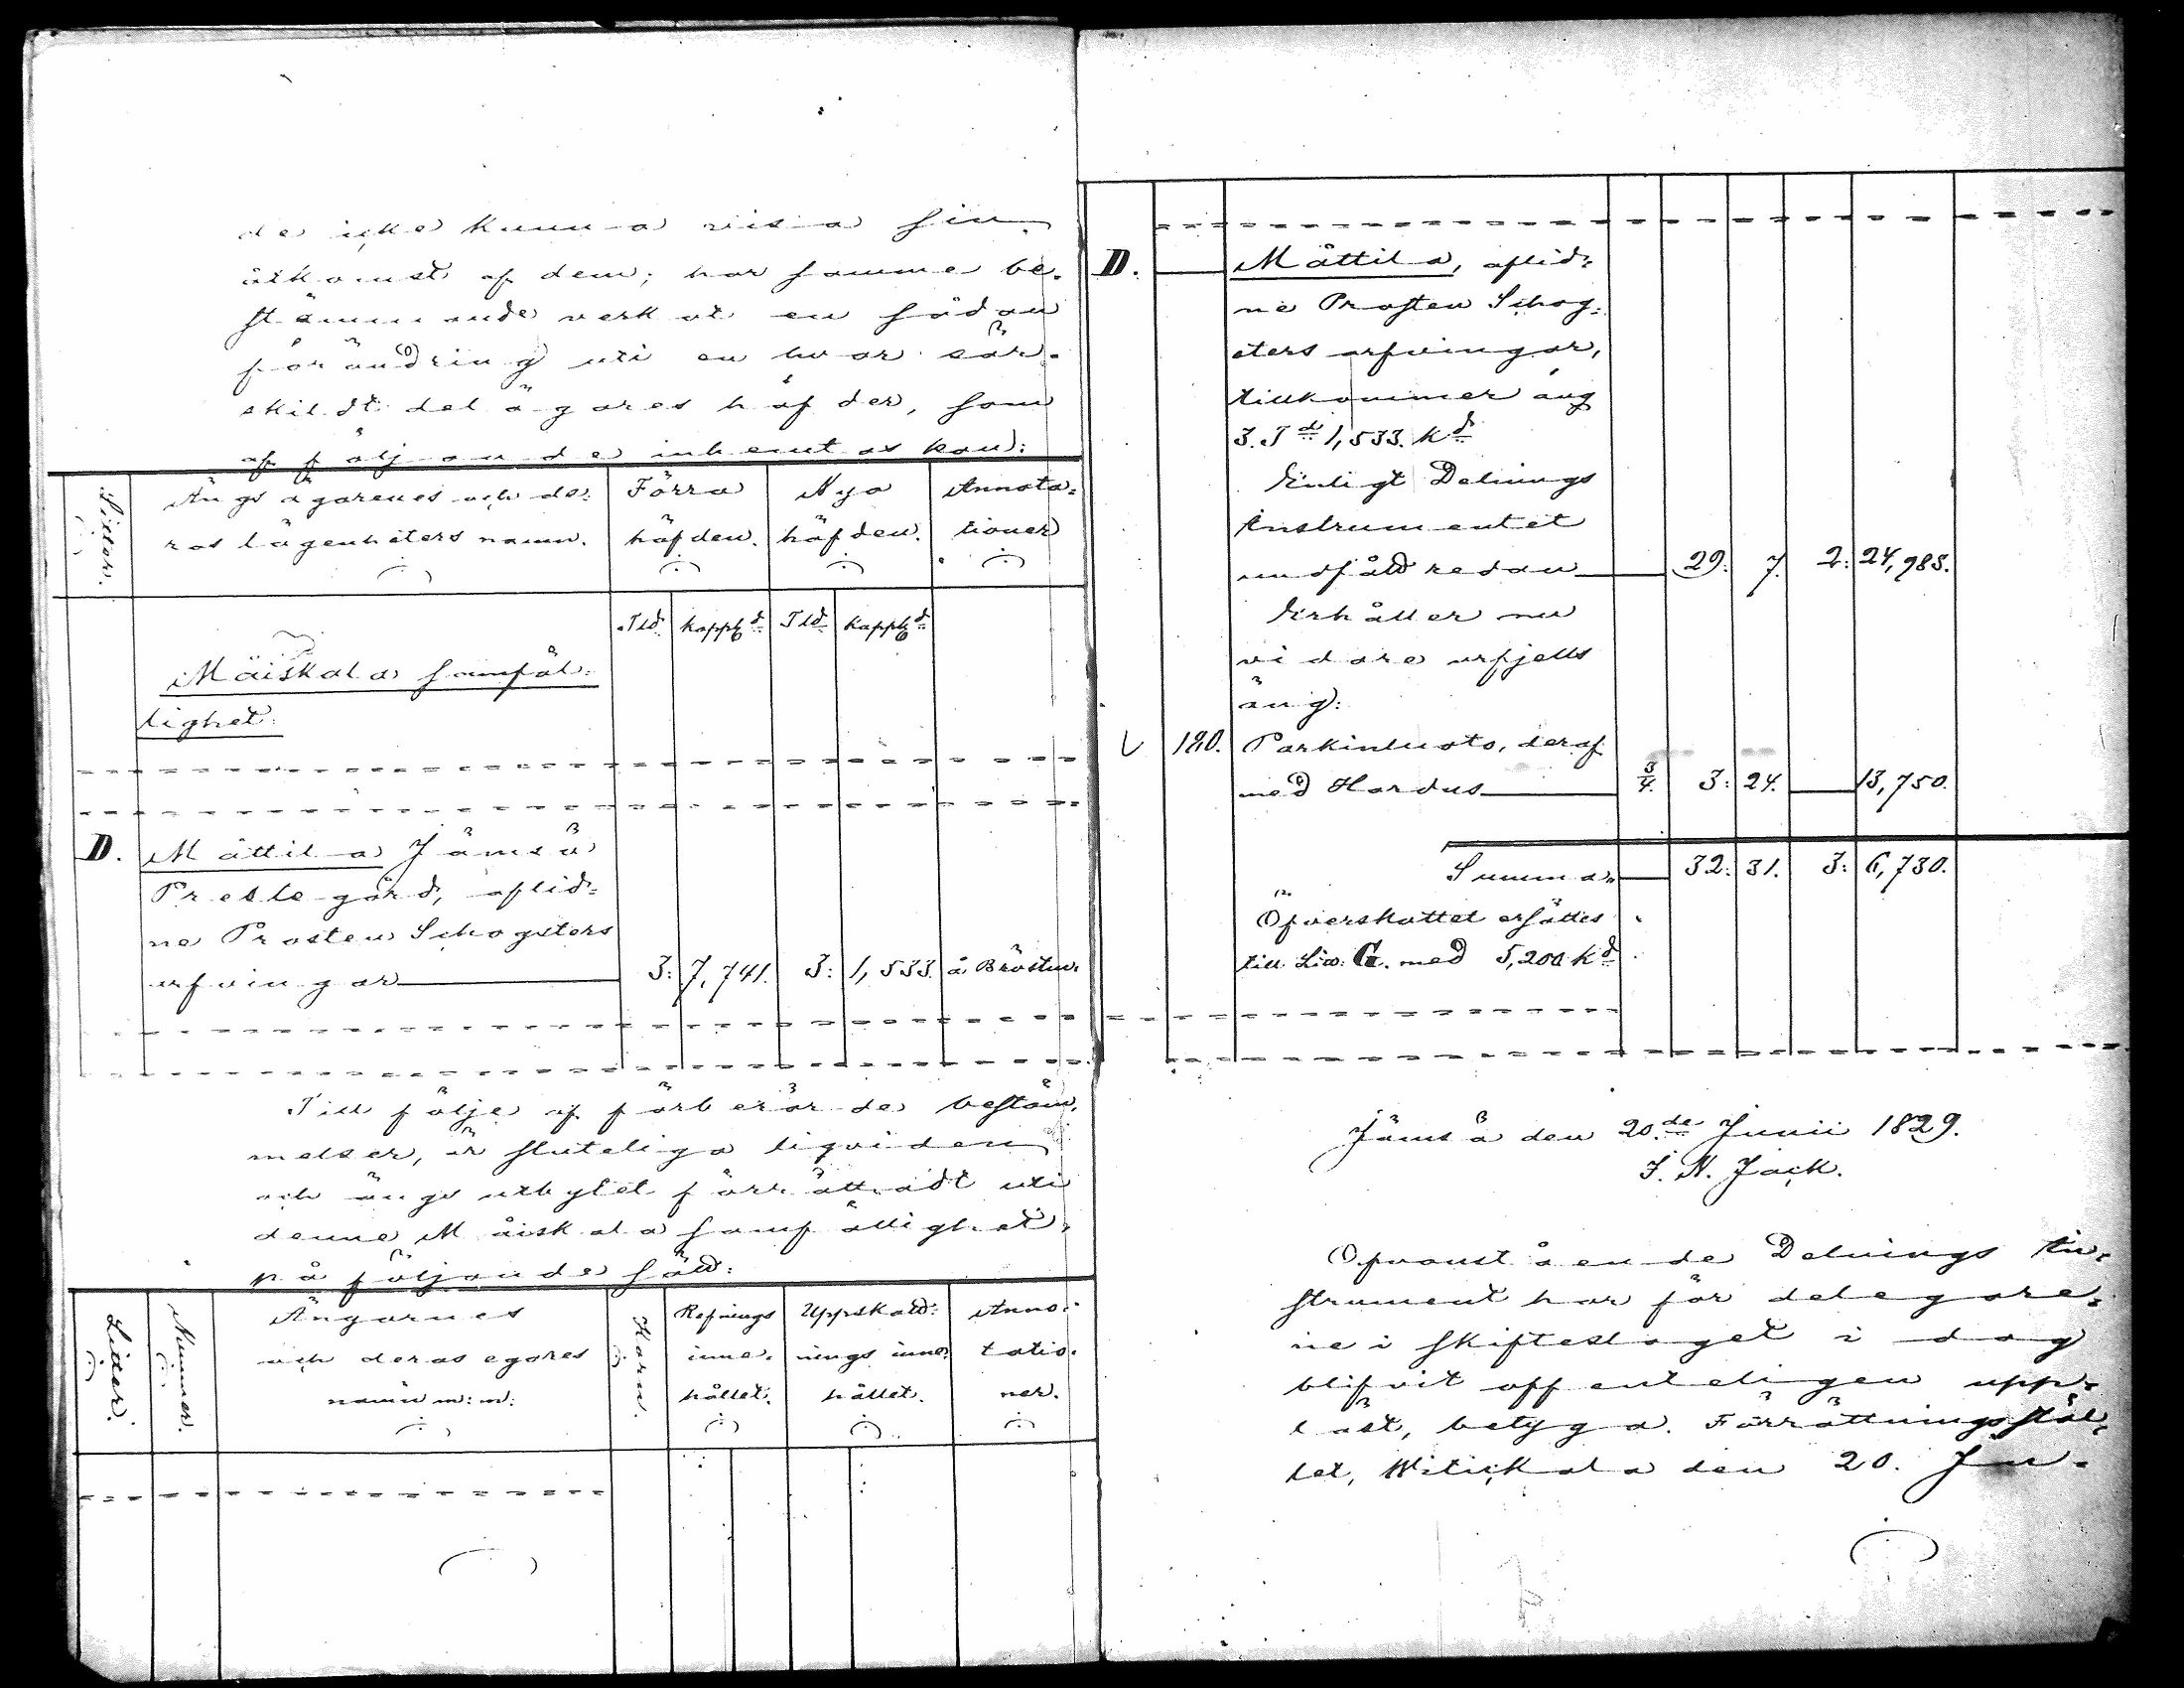 de icke kunna visa sin
åtkomst af dem; har samme be-
stämmande verkat en sådan
förändring uti en hvar sär-
skildt delägares häfder, som
af följande inhemtas kan:
Litter.
Ängsägarenes och de-
ras lägenheters namn.
Förra
häfden.
Nya
häfden.
Annota-
tioner
Tld. kappld. Tld. kappld.
Mäiskala samfäl-
lighet.
D. Mattila Jämsä
Prestegård, aflid-
ne Prosten Schogsters
arfvingar 3: 7,741. 3: 1,533. à Bristen.
Till följe af förberörde bestäm-
melser, är sluteliga liqviden
och ängs utbytet förrättadt uti
denne Mäiskala samfällighet,
på följande sätt:
Litter.
Nummer.
Ängarnes
och deras egares
namn m: m:
Karne.
Refnings
inne-
hållet.
Uppskatt-
nings inne-
hållet.
Anno-
tatio-
ner.
D. Mattila, aflid-
ne Prosten Schog-
sters arfvingar,
tillkommer äng
3. Td 1,533. kd
Enligt Delnings
Instrumentet
undfådt redan 29: 7. 2: 24,985.
Erhåller nu
vidare urfjells
äng:
180. Parkinluoto, deraf
med Hardus 3/4. 3: 24. 13,750.
Summa 32: 31. 3: 6,730.
Öfverskottet ersättes
till Litt: G. med 5,200 kd
Jämsä den 20de Junii 1829.
J. N. Jack.
Ofvanstående Delnings In-
strument har för delegare-
ne i skifteslaget i dag
blifvit offenteligen upp-
läst, betyga. Förrättningsstäl-
let, Witickala den 20. Ju-